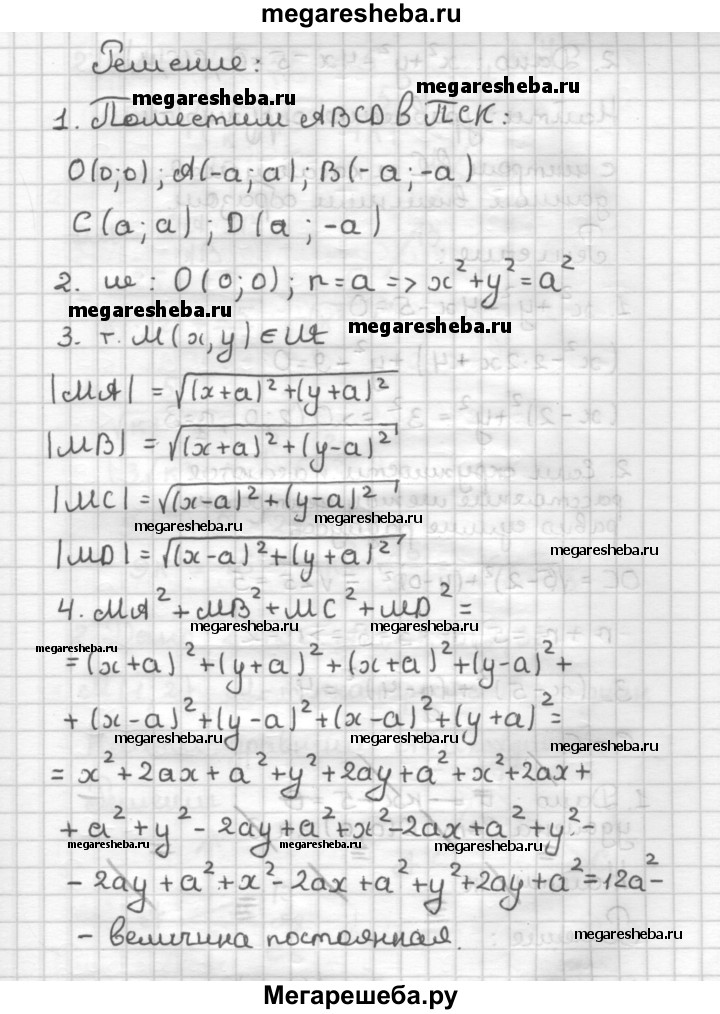 megaresheba.ru
Решение:
megaresheba.ru
megaresheba.ru
1. Поместим ABCD в ПСК:
O(0;0); A(-a; a); B(-a; -a)
C(a; a); D(a; -a)
2. ω: O(0; 0); r=a => x²+y²=a²
megaresheba.ru
megaresheba.ru
3. т. M(x, y) ∈
|MA| = √((x+a)²+(y+a)²)
|MB| = √((x+a)²+(y-a)²)
|MC| = √((x-a)²+(y-a)²)
megaresheba.ru megaresheba.ru
|MD| = √((x-a)²+(y+a)²)
megaresheba.ru
4. MA²+MB²+MC²+MD²=
megaresheba.ru megaresheba.ru
megaresheba.ru
=(x+a)²+(y+a)²+(x+a)²+(y-a)²+
+(x-a)²+(y-a)²+(x-a)²+(y+a)²=
megaresheba.ru megaresheba.ru megaresheba.ru
= x²+2ax+a²+y²+2ay+a²+x²+2ax+
+a²+y²-2ay+a²+x²-2ax+a²+y²-
megaresheba.ru megaresheba.ru megaresheba.ru
-2ay+a²+x²-2ax+a²+y²+2ay+a²=12a²-
- величина постоянная.
megaresheba.ru
Мегарешеба.ру